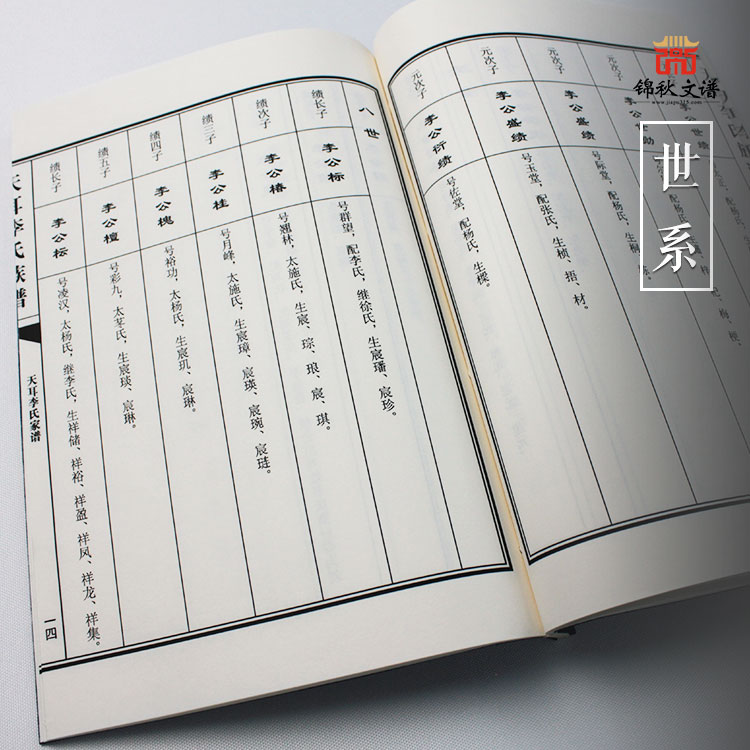 锦秋文谱
www.jiapu315.com
世系
元次子
李公世绩
元次子
李公盛绩
号际堂，配杨氏，生桐
元次子
李公盛绩
号玉堂，配张氏，生桢、捂、材。
元次子
李公衍绩
号佐堂，配杨氏，生樑。
八世
绩长子
李公标
号群望，配李氏，继徐氏，生宸璠、宸珍。
绩次子
李公椿
号翘林，太施氏，生宸、琮、琅、宸、琪。
绩三子
李公桂
号月峰，太施氏，生宸璋、宸瑛、宸琬、宸琏。
绩四子
李公槐
号裕功，太杨氏，生宸玑、宸琳。
绩五子
李公檀
号彩九，太芰氏，生宸琰、宸琳。
绩长子
李公枟
号凌汉，太杨氏，继李氏，生祥储、祥裕、祥盈、祥凤、祥龙、祥集。
天耳李氏族谱
天耳李氏家谱
一四